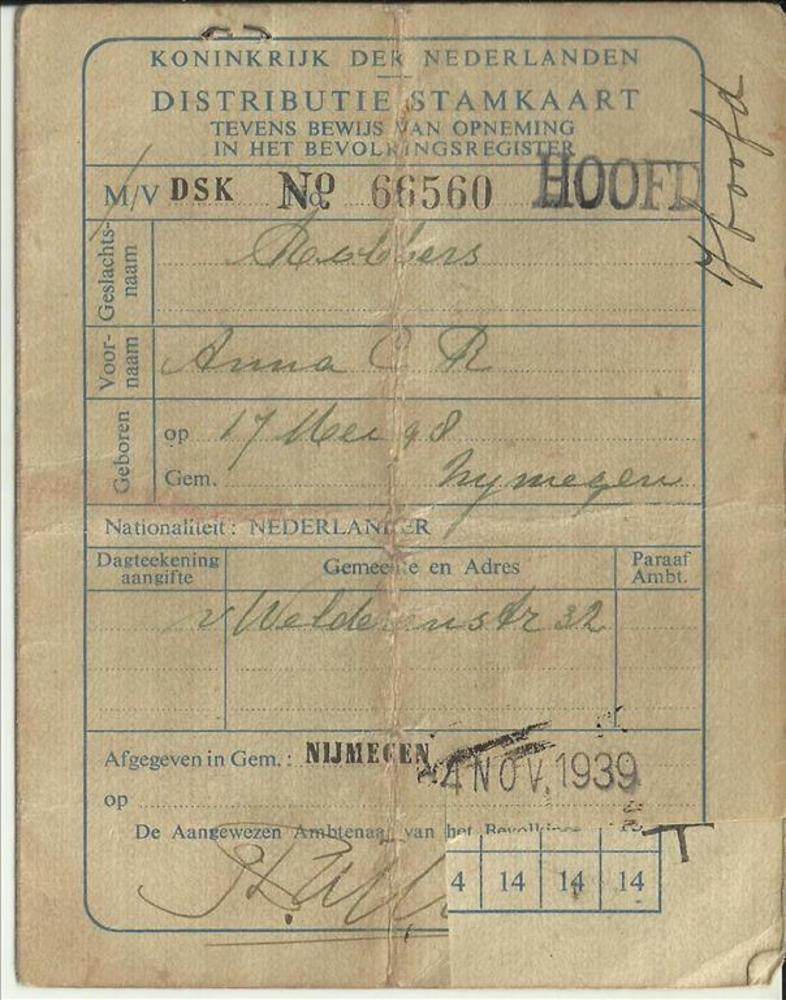 KONINKRIJK DER NEDERLANDEN
DISTRIBUTIE STAMKAART
TEVENS BEWIJS VAN OPNEMING
IN HET BEVOLKINGSREGISTER
M/V DSK No 66560 HOOFD
Hoofd
Geslachts-
naam
Robbers
Voor-
naam
Anna C R
Geboren
op 17 Mei 98
Gem. Nymegen
Nationaliteit: NEDERLANDER
Dagteekening
aangifte
Gemeente en Adres
Paraaf
Ambt.
v Welderenstr 32
Afgegeven in Gem.: NIJMEGEN
op
4 NOV. 1939
De Aangewezen Ambtenaar van het
T
4 14 14 14